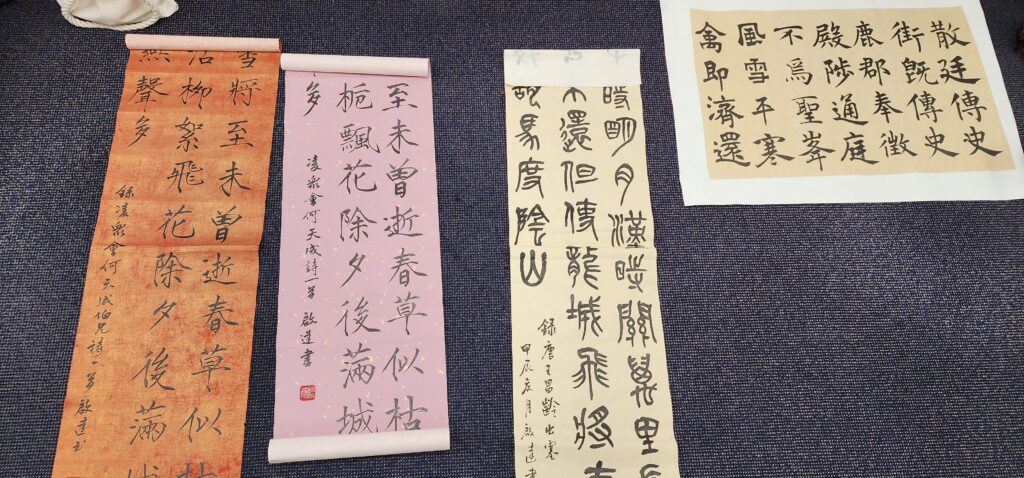 雪將至未曾逝春草似枯
沾柳絮飛花除夕後滿城
聲多
錄凌會何天成伯兄詩一首 啟達書
至未曾逝春草似枯
飄花除夕後滿城
多
凌會何天成詩一首 啟達書
時明月漢時關萬里長
還但使龍城飛將在
胡馬度陰山
錄唐王昌齡出塞
甲辰月啟達書
散廷傳史
街既傳史
鹿郡奉徵
殿陟通庭
不為聖峯
風雪平寒
禽即濟還